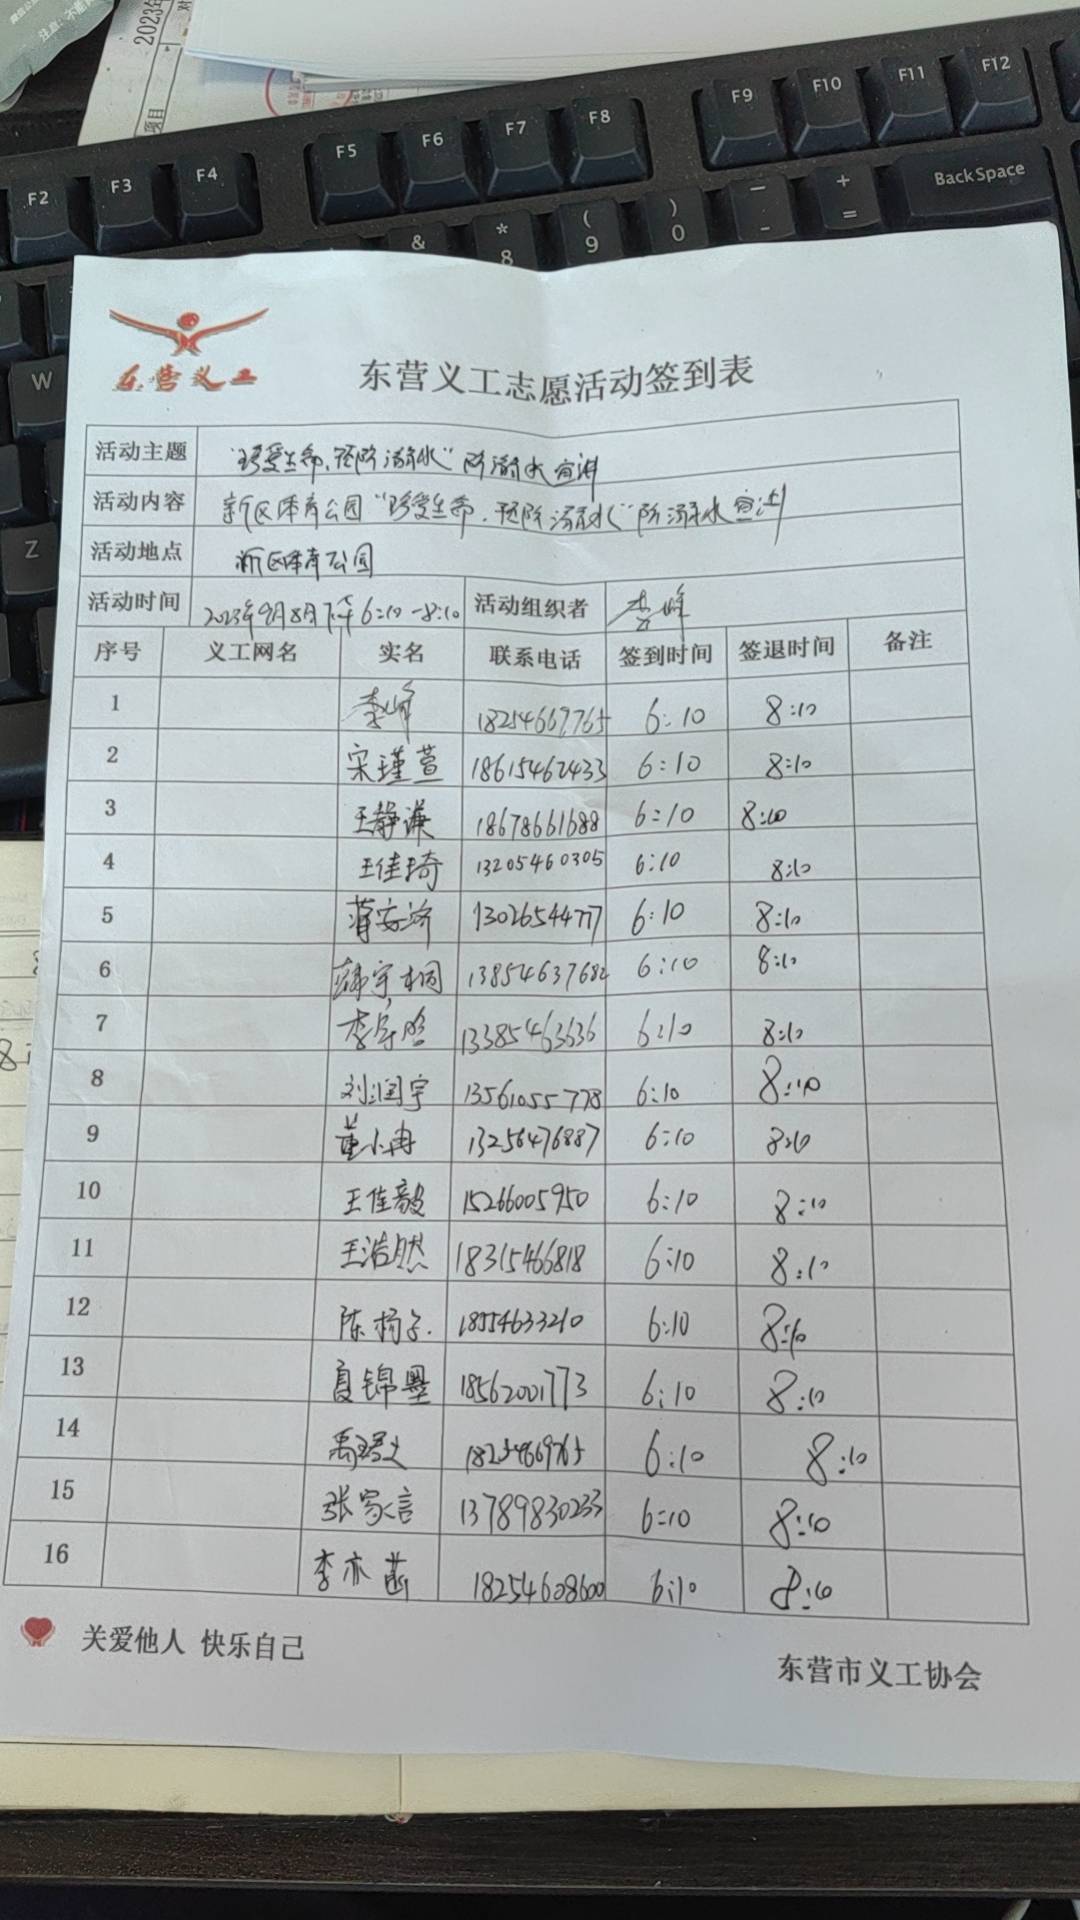 2023年
项目
F2 F3 F4 F5 F6 F7 F8 F9 F10 F11 F12
& * 8 ( 9 ) 0 — - + = BackSpace
W
Z
东营义工
东营义工志愿活动签到表
活动主题 "珍爱生命,预防溺水"防溺水宣讲
活动内容 新区体育公园"珍爱生命,预防溺水"防溺水宣讲
活动地点 新区体育公园
活动时间 2023年9月8日下午6:10-8:10 活动组织者 李峰
序号 义工网名 实名 联系电话 签到时间 签退时间 备注
1 李峰 18254669765 6:10 8:10
2 宋瑾萱 18615462433 6:10 8:10
3 王静谦 18678661688 6:10 8:10
4 王佳琦 13205460305 6:10 8:10
5 13026544777 6:10 8:10
6 韩宇桐 13854637682 6:10 8:10
7 13385463636 6:10 8:10
8 刘润宇 13561055778 6:10 8:10
9 董小冉 13256476887 6:10 8:10
10 王佳毅 15266005950 6:10 8:10
11 王浩然 18315466818 6:10 8:10
12 陈杨子. 18554633210 6:10 8:10
13 夏锦墨 18562001773 6:10 8:10
14 18254669765 6:10 8:10
15 张家言 13789830233 6:10 8:10
16 李亦菡 18254608600 6:10 8:10
关爱他人 快乐自己
东营市义工协会